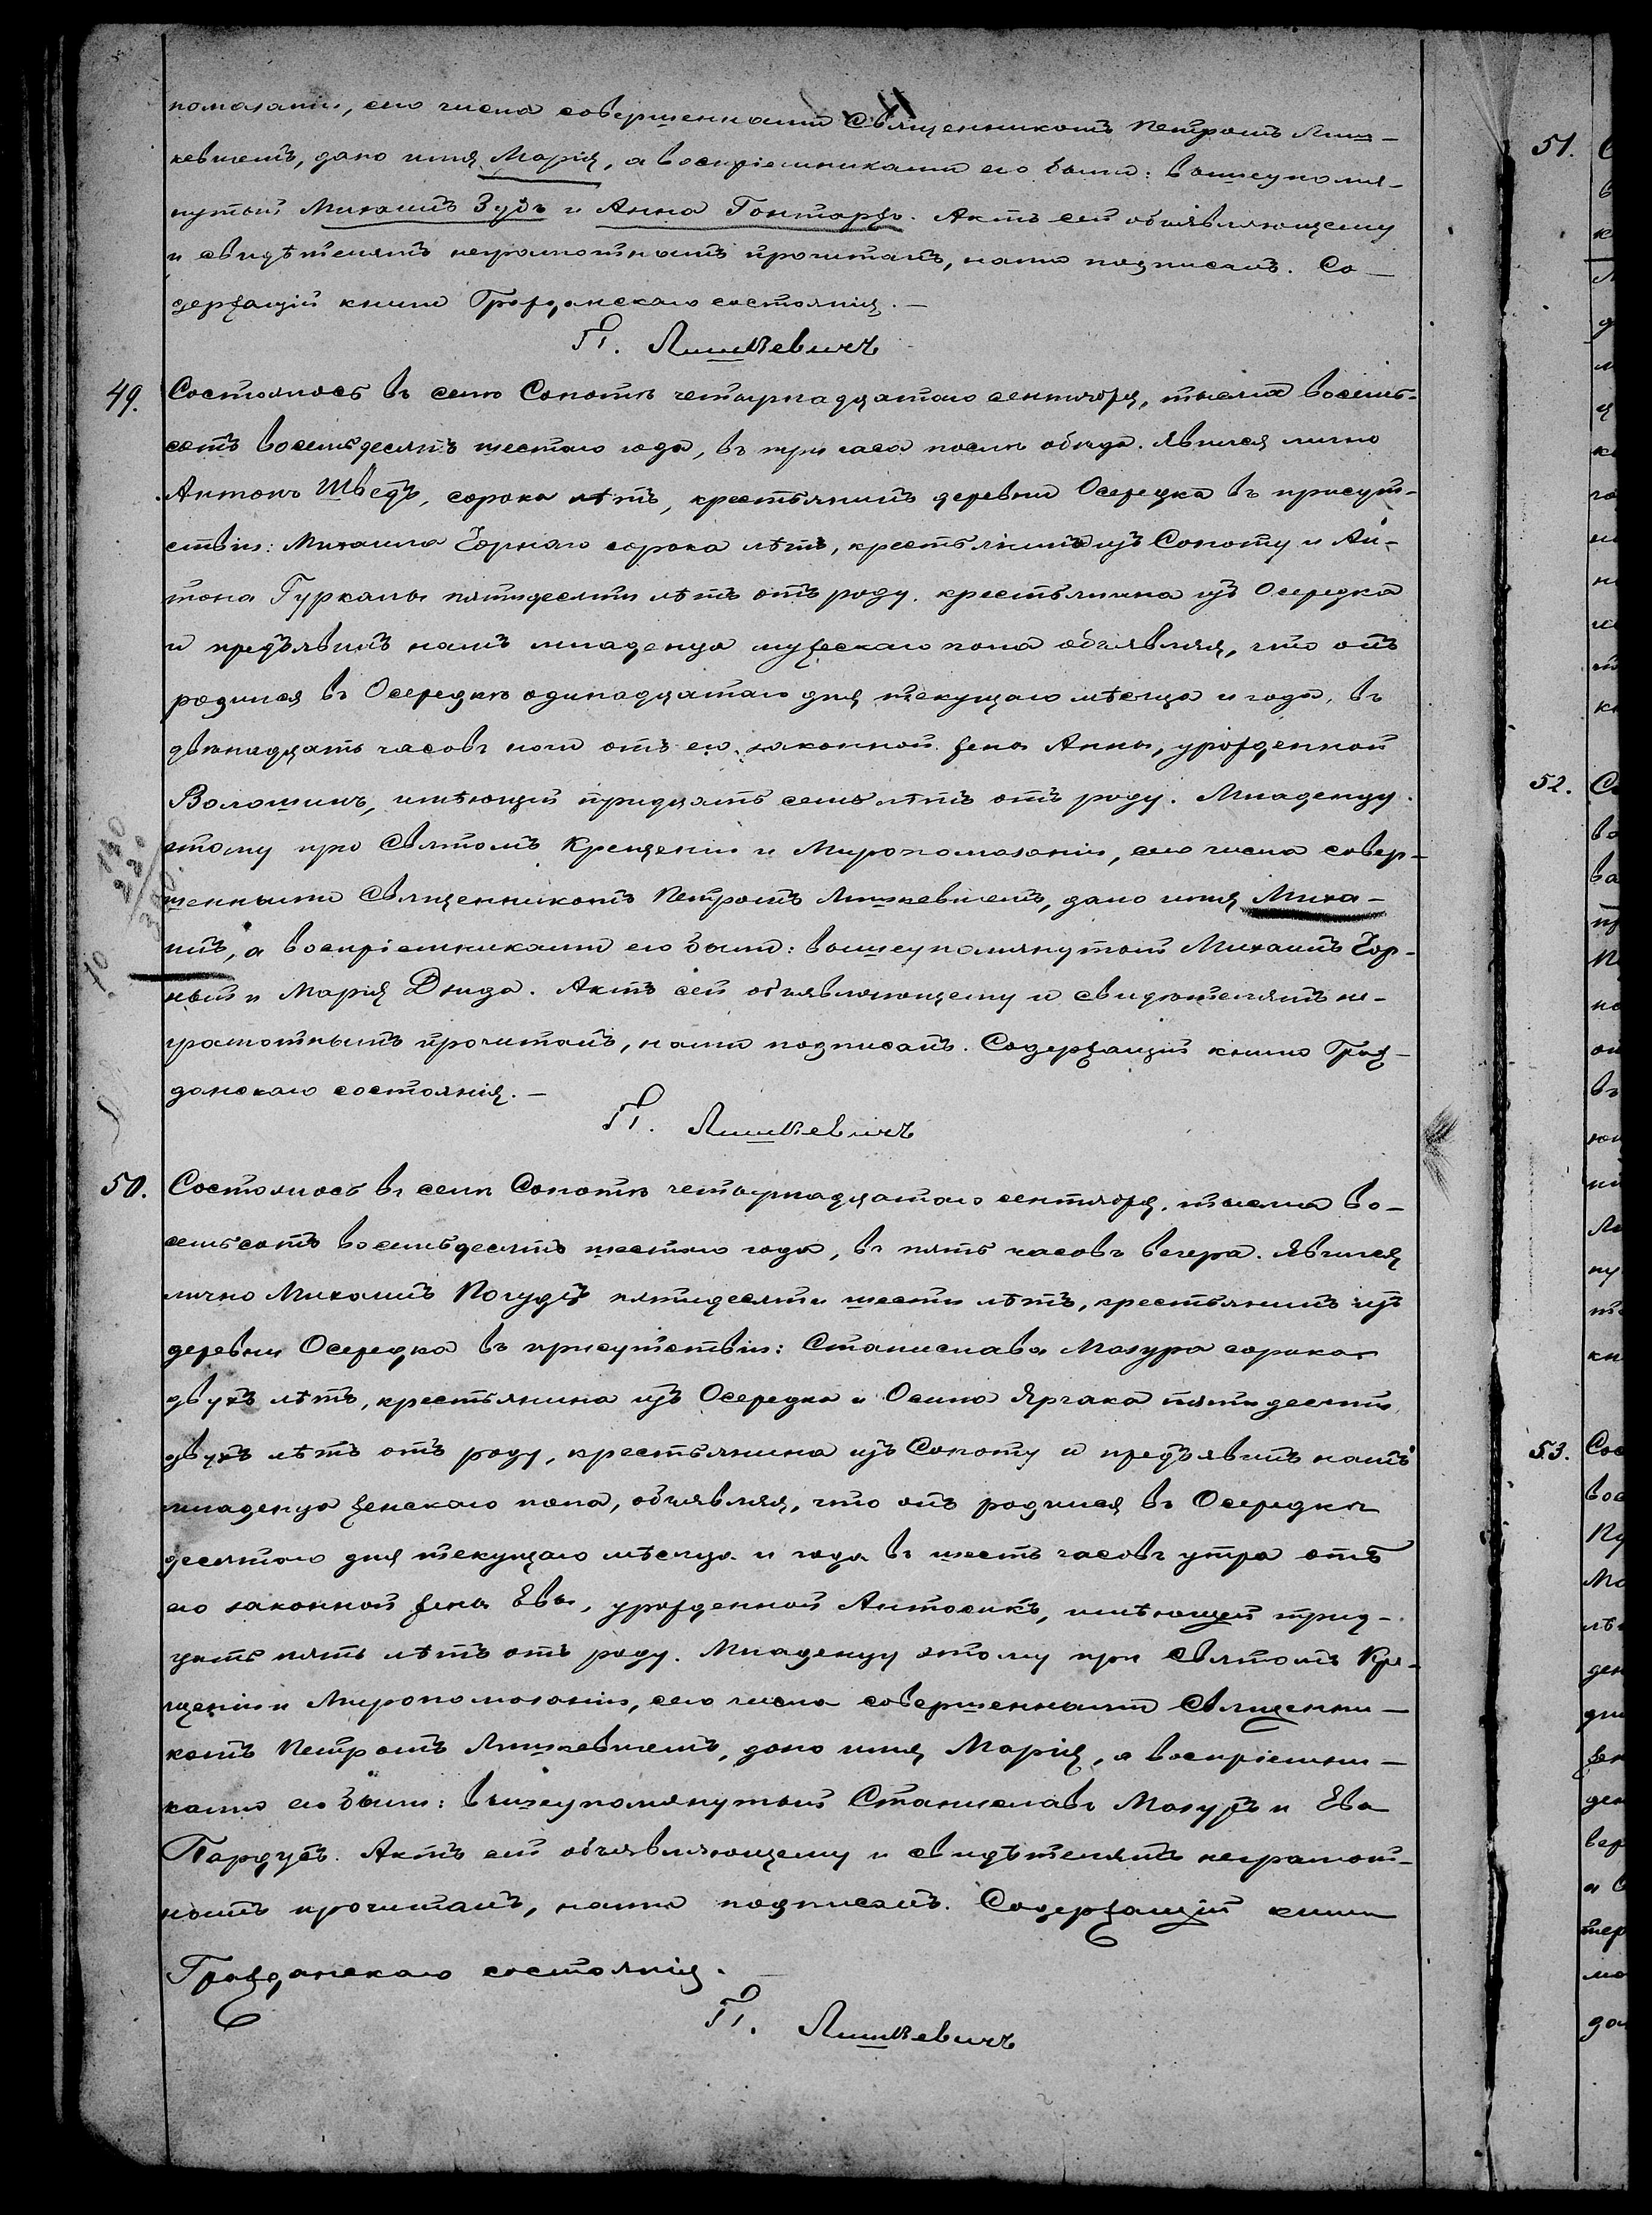 помазаніи, сего числа совершенными Священникомъ Петромъ Лиш-
кевичемъ, дано имя Марія, а воспріемниками его были: вышеупомя-
нутый Михаилъ Зубъ и Анна Гонтаржъ. Актъ сей объявляющему
и свидѣтелямъ неграмотнымъ прочитанъ, нами подписанъ. Со-
держащій книги Гражданскаго состоянія. –
П. Лишкевичъ
49. Состоялось въ селѣ Сопотѣ четырнадцатаго сентября, тысяча восемь-
сотъ восемьдесятъ шестаго года, въ три часа послѣ обѣда. Явился лично
Антонъ Шведъ, сорока лѣтъ, крестьянинъ деревни Осередка въ присут-
ствіи: Михаила Чорнаго сорока лѣтъ, крестьянина изъ Сопоту и Ан-
тона Гуркалы пятидесяти лѣтъ отъ роду, крестьянина изъ Осередка
и предъявилъ намъ младенца мужескаго пола объявляя, что онъ
родился въ Осередкѣ одинадцатаго дня текущаго мѣсяца и года, въ
двѣнадцать часовъ ночи отъ его законной жены Анны, урожденной
Волошинъ, имѣющей тридцать семь лѣтъ отъ роду. Младенцу
этому при Святомъ Крещеніи и Миропомазаніи, сего числа совер-
шенными Священникомъ Петромъ Лишкевичемъ, дано имя Миха-
илъ, а воспріемниками его были: вышеупомянутый Михаилъ Чор-
ный и Марія Дзюда. Актъ сей объявляющему и свидѣтелямъ не-
грамотнымъ прочитанъ, нами подписанъ. Содержащій книги Граж-
данскаго состоянія. –
П. Лишкевичъ
50. Состоялось въ селѣ Сопотѣ четырнадцатаго сентября, тысяча во-
семьсотъ восемьдесятъ шестаго года, въ пять часовъ вечера. Явился
лично Михаилъ пятидесяти шести лѣтъ, крестьянинъ изъ
деревни Осередка въ присутствіи: Станислава Мазура сорока
двухъ лѣтъ, крестьянина изъ Осередка и Осипа пятидесяти
двухъ лѣтъ отъ роду, крестьянина изъ Сопоту и предъявилъ намъ
младенца женскаго пола, объявляя, что онъ родился въ Осередкѣ
десятаго дня текущаго мѣсяца и года въ шесть часовъ утра отъ
его законной жены Евы, урожденной Антосикъ, имѣющей трид-
цать пять лѣтъ отъ роду. Младенцу этому при Святомъ Кре-
щеніи и Миропомазаніи, сего числа совершенными Священни-
комъ Петромъ Лишкевичемъ, дано имя Марія, а воспріемни-
ками его были: вышеупомянутый Станиславъ Мазуръ и Ева
Актъ сей объявляющему и свидѣтелямъ неграмот-
нымъ прочитанъ, нами подписанъ. Содержащій книги
Гражданскаго состоянія. –
П. Лишкевичъ
51.
52.
53.